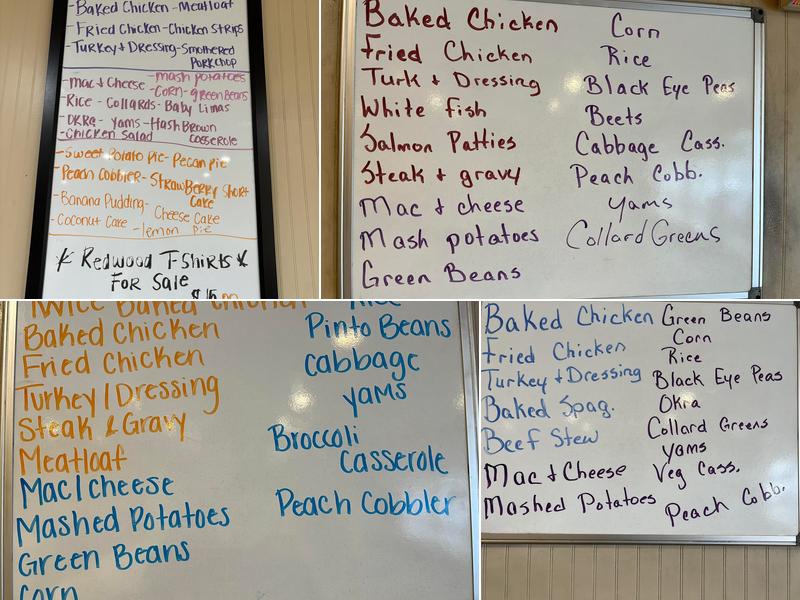 -Baked Chicken-Meatloaf
-Fried Chicken-Chicken Strips
-Turkey & Dressing-Smothered
Porkchop
-Mac & Cheese -mash potatoes
-Corn-greenBeans
-Rice - Collards- Baby Limas
-OKRA- Yams-HashBrown
Casserole
-Chicken Salad
-Sweet Potato Pie-Pecan pie
-Peach Cobbler- StrawBerry Short
Cake
-Banana Pudding- Cheese Cake
-Coconut Cake -lemon Pie
Redwood T-Shirts
For Sale
Baked Chicken
Fried Chicken
Turk & Dressing
White fish
Salmon Patties
Steak & gravy
Mac & cheese
Mash potatoes
Green Beans
Corn
Rice
Black Eye Peas
Beets
Cabbage Cass.
Peach Cobb.
Yams
Collard Greens
Twice Baked Chicken
Baked Chicken
Fried Chicken
Turkey/Dressing
Steak & Gravy
Meatloaf
Mac/cheese
Mashed Potatoes
Green Beans
Corn
Rice
Pinto Beans
cabbage
yams
Broccoli
Casserole
Peach Cobbler
Baked Chicken
Fried Chicken
Turkey & Dressing
Baked Spag.
Beef Stew
Mac & Cheese
Mashed Potatoes
Green Beans
Corn
Rice
Black Eye Peas
Okra
Collard Greens
Yams
Veg Cass.
Peach Cobb.